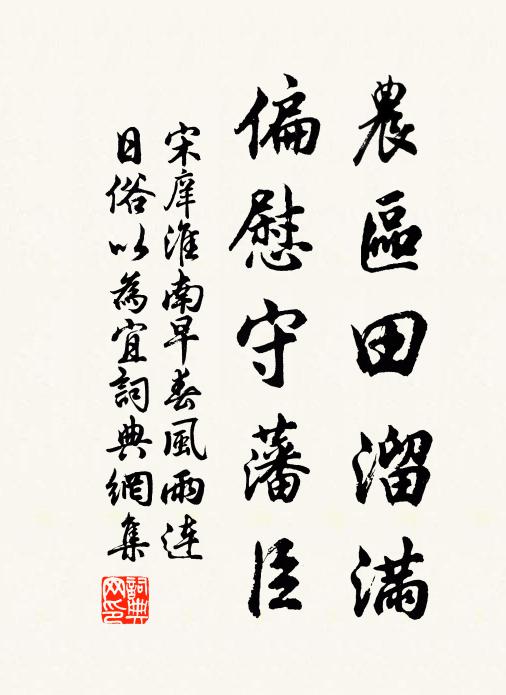 農區田溜滿
偏慰守藩臣
宋庠淮南早春風雨連
日俗以為宜詞典網集
詞典網印